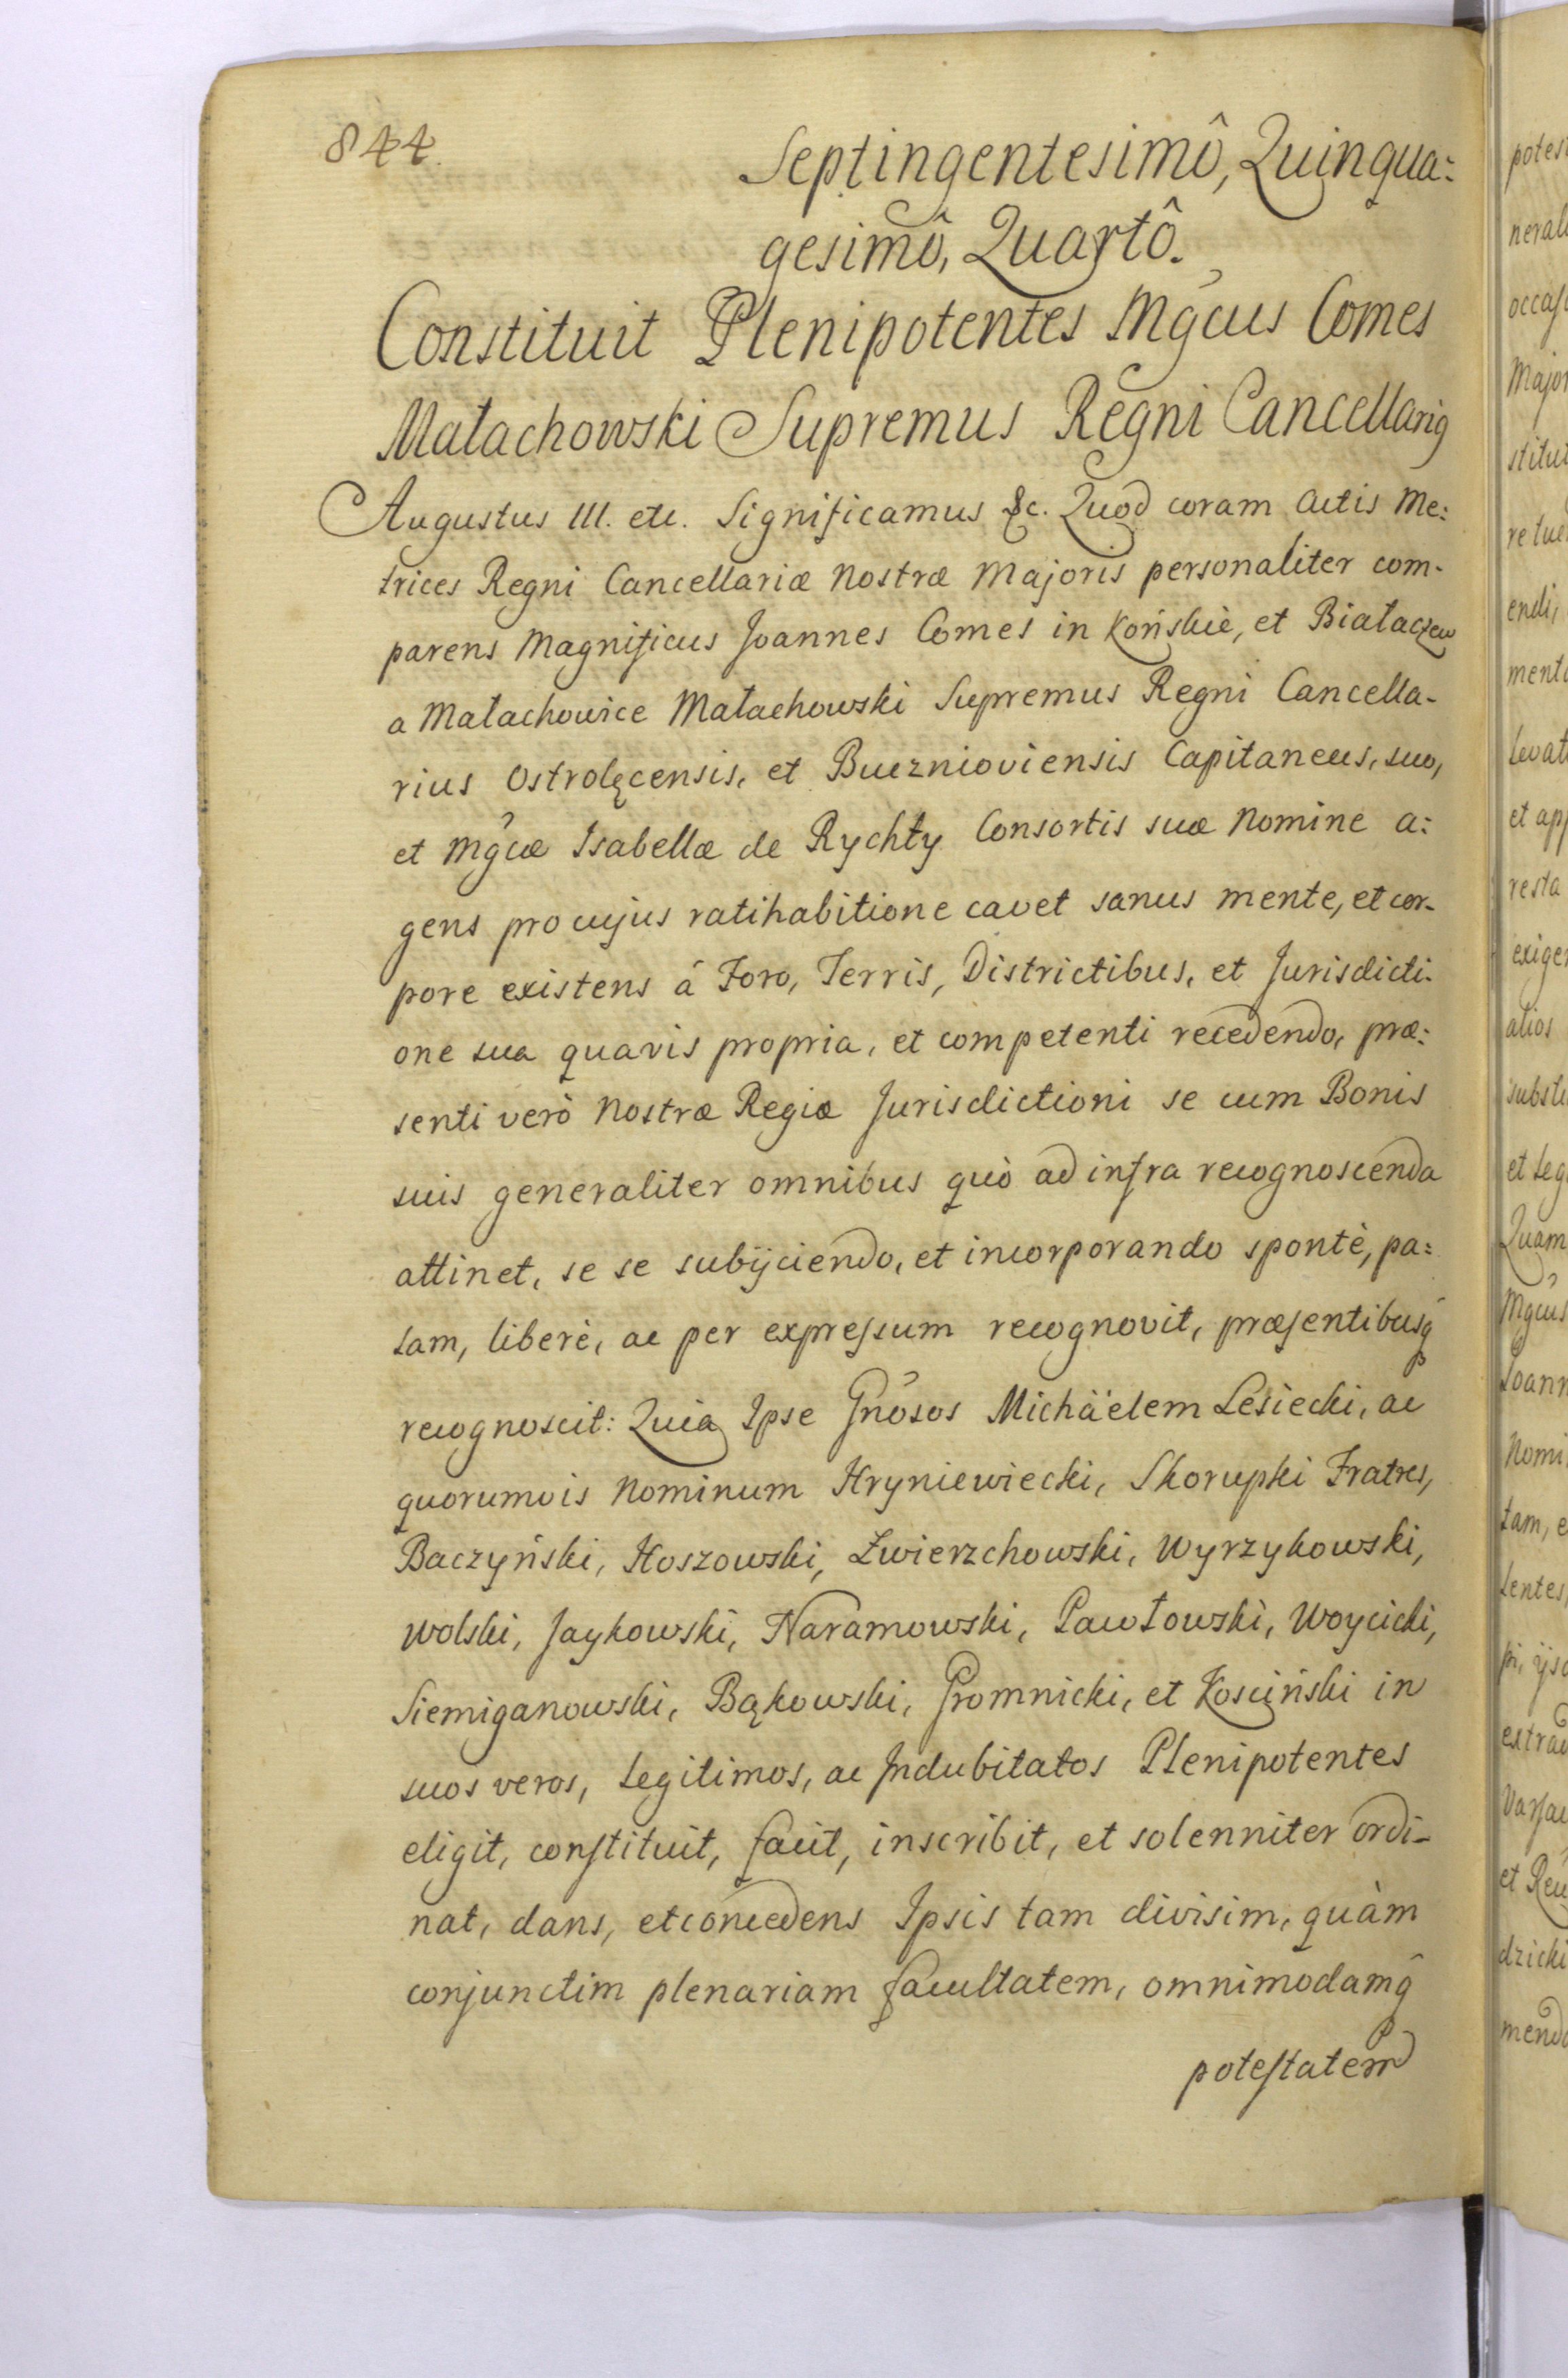 844.
Septingentesimô, Quinqua:
gesimô, Quartô.
Constituit Plenipotentes Mgcus Comes
Małachowski Supremus Regni Cancellarig
Augustus III. etc. Significamus &c. Quod coram Actis Me:
trices Regni Cancellariæ Nostræ Majoris personaliter com-
parens Magnificus Joannes Comes in Końskie, et Białaczew
a Małachowice Małachowski Supremus Regni Cancella-
rius Ostrolęcensis, et Bucznioviensis Capitaneus, suo,
et Mgcæ Isabellæ de Rychty Consortis suæ Nomine a:
gens pro cujus ratihabitione cavet sanus mente, et cor-
pore existens á Foro, Terris, Districtibus, et Jurisdicti-
one sua quavis propria, et competenti recedendo, præ:
senti verò Nostræ Regiæ Jurisdictioni se cum Bonis
suis generaliter omnibus quò ad infra recognoscenda
attinet, se se subijciendo, et incorporando spontè, pa:
lam, liberè, ac per expreſsum recognovit, præſentibusq̃
recognoscit: Quia Ipse Gnõsos Michäelem Lesiecki, ac
quorumvis Nominum Hryniewiecki, Skorupki Fratres,
Baczyński, Hoszowski, Zwierzchowski, Wyrzykowski,
Wolski, Jaykowski, Naramowski, Pawłowski, Woycicki,
Siemiganowski, Bąkowski, Gromnicki, et Kosciński in
suos veros, Legitimos, ac Indubitatos Plenipotentes
eligit, conſtituit, facit, inscribit, et solenniter ordi-
nat, dans, et concedens Ipsis tam divisim, quàm
conjunctim plenariam facultatem, omnimodamq̃
poteſtatem